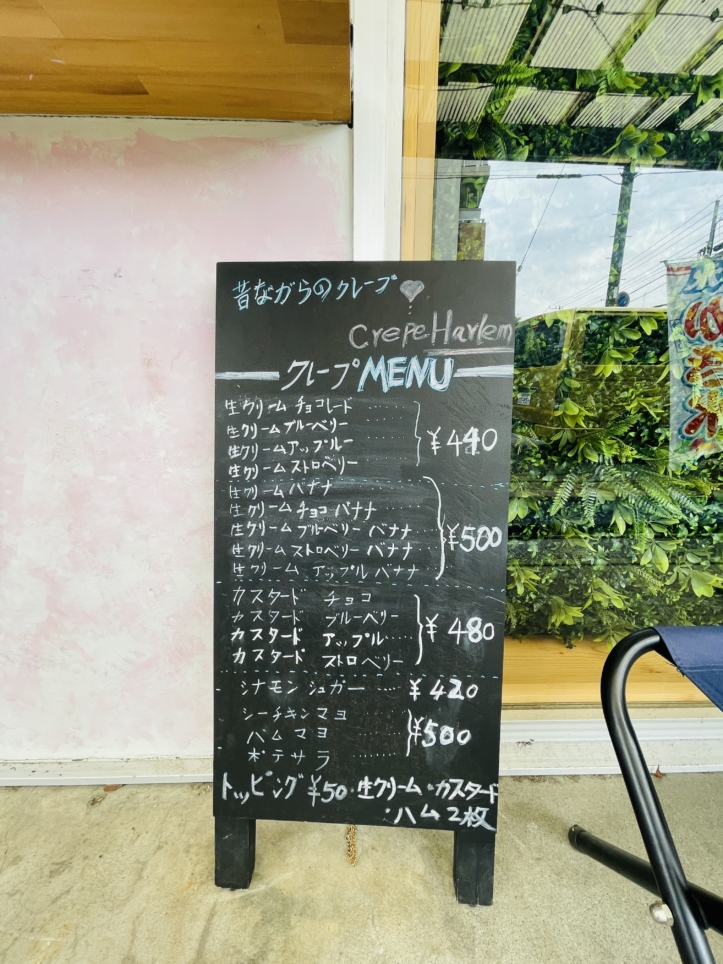 昔ながらのクレープ
Crepe Harlem
クレープ MENU
生クリーム チョコレート
生クリームブルーベリー
生クリームアップルー
生クリーム ストロベリー
¥440
生クリーム バナナ
生クリーム チョコ バナナ
生クリーム ブルーベリー バナナ
生クリーム ストロベリー バナナ
生クリーム アップル バナナ
¥500
カスタード チョコ
カスタード ブルーベリー
カスタード アップル
カスタード ストロベリー
¥480
シナモン シュガー ¥420
シーチキンマヨ
ハムマヨ
ポテサラ
¥500
トッピング ¥50・生クリーム・カスタード
・ハム2枚